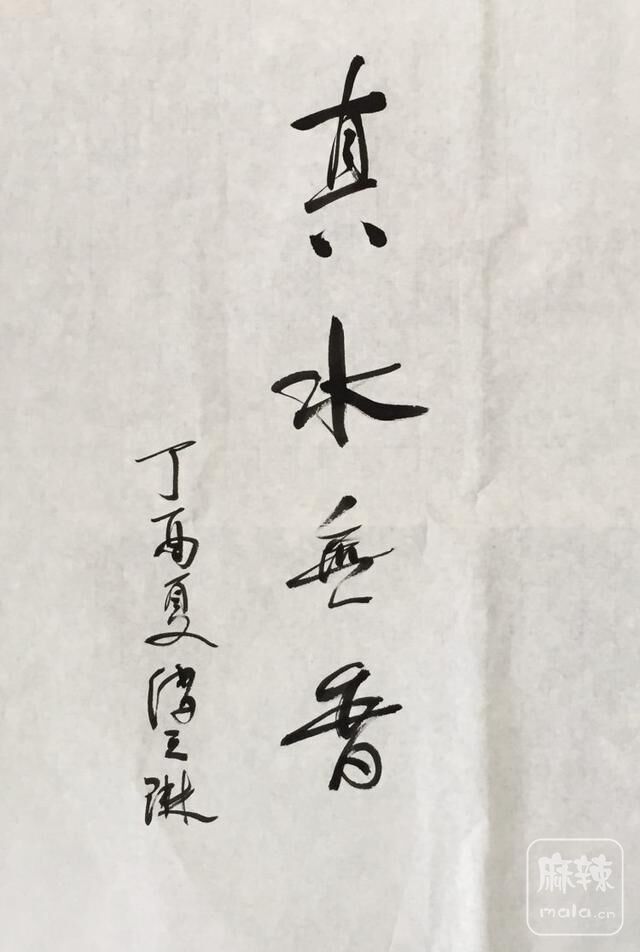 真水無香
丁酉夏
麻辣
mala.cn